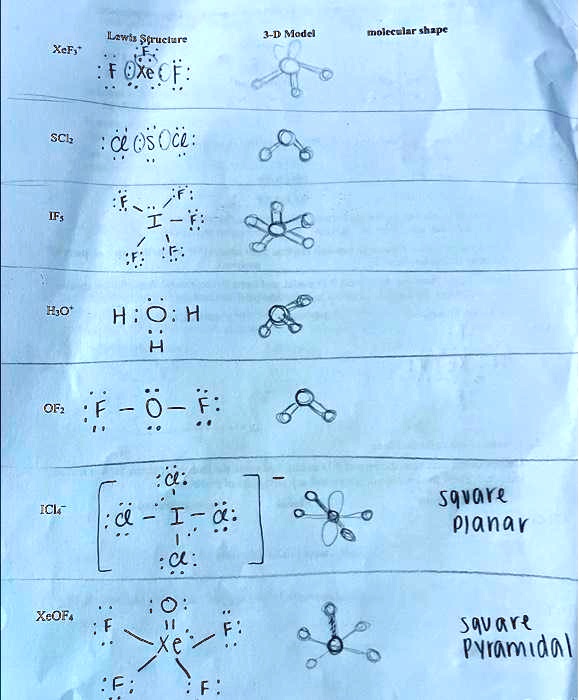 Lewis Structure 3-D Model molecular shape
XeF₃⁺
:F:
:F Xe F:
SCl₂ :Cl S Cl:
IF₅
:F: :F:
I – F:
:F: :F:
H₃O⁺ H : O : H
H
OF₂ :F – O – F:
:Cl:
ICl₄⁻ [:Cl – I – Cl:]⁻ square
planar
:Cl:
XeOF₄ :O:
:F Xe F: square
pyramidal
:F: :F: